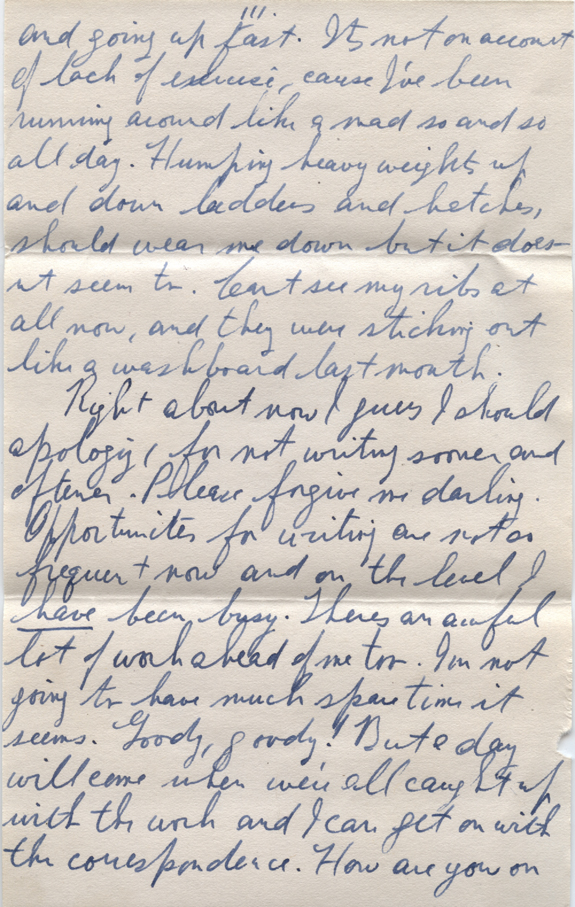 and going up fast.!!! Its not on account
of lack of excercise, cause I've been
running around like a mad so and so
all day. Humping heavy weights up
and down ladders and hatches,
should wear me down but it does-
nt seem to. Cant see my ribs at
all now, and they were sticking out
like a washboard last month.
Right about now I guess I should
apologize for not writing sooner and
oftener. Please forgive me darling.
Opportunites for writing are not so
frequent now and on the level I
have been busy. Theres an awful
lot of work ahead of me too. I'm not
going to have much spare time it
seems. Goody, goody! But a day
will come when we're all caught up
with the work and I can get on with
the correspondence. How are you on